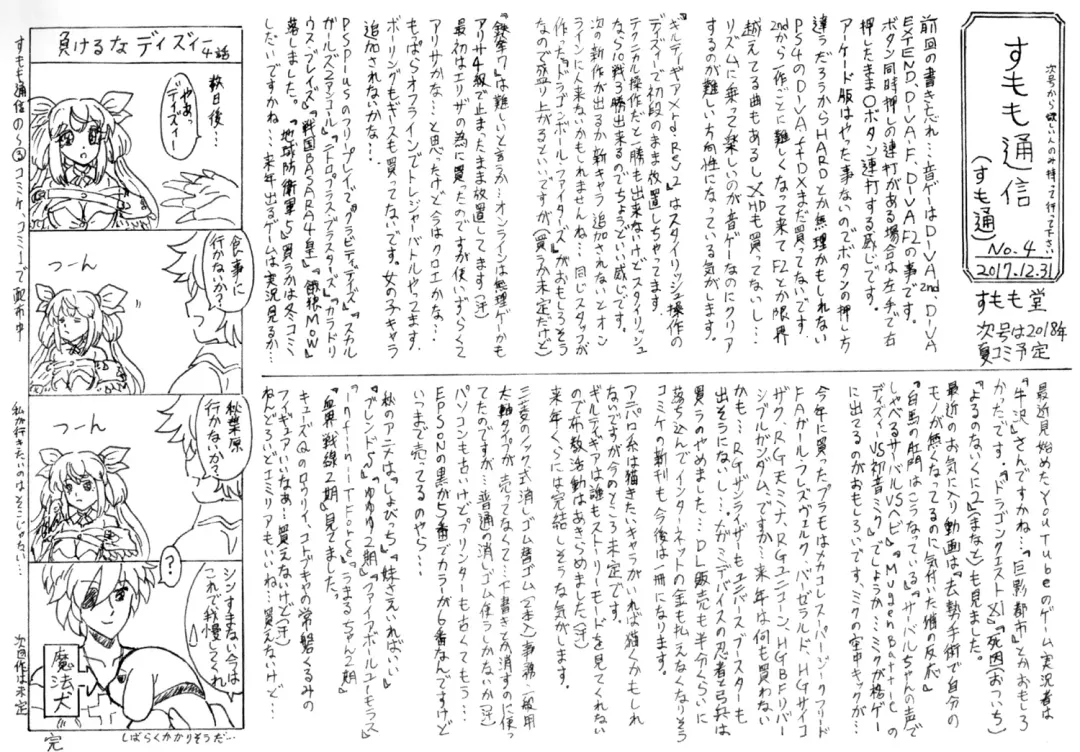 次号から欲しい人のみ持って行って下さい
すもも通信
(すも通)
No.4
2017.12.31
すもも堂
次号は2018年
夏コミ予定
前回の書きこだれ…音ゲーはDIVA 2nd DIVA
EXTEND、DIVA F、DIVA F2の事です。
ボタン同時押しの連打がある場合は左手で右
押したまま○ボタン連打する感じです。
アーケード版はやった事ないのでボタンの押し方
違うだろうからHARDとか無理かもしれない
PS4のDIVA ftDXまだ買ってないです
2ndから一作ごとに難しくなって来てF2とか限界
越えてる曲もあるしXHDも買ってないし…
リズムに乗って楽しいのが音ゲーなのにクリア
するのが難しい方向性になっている気がします。
『ギルティギアXrd Rev2』はスタイリッシュ操作の
ディズィーで初段のまま放置しちゃってます
テクニカル操作だと一勝も出来ないけどスタイリッシュ
なら10戦3勝出来るのでちょうどいい感じです。
次の新作が出るか新キャラ追加されないとオン
ラインに人来ないかもしれませんね…同じスタッフが
作った『ドラゴンボールファイターズ』がおもしろそう
なので盛り上がるといいですが(買うか未定だけど)
『鉄拳7』は難しいと言うか…オンラインは無理ゲーかも
アリサ4級で止まったまま放置してます(汗)
最初はエリザの為に買ったのですが使いずらくて
アリサかな…と思ったけど今はクロエかな…
もっぱらオフラインでトレジャーバトルやってます。
ボーリングもギースも買ってないです。女の子キャラ
追加されないかな…
PSplusのフリープレイで『グラビティデイズ』『スカル
ガールズ2アンコール』『ニトロプラスブラスターズ』『カラドリ
ウスブレイズ』『戦国BASARA4皇』『餓狼MoW』
落しました。『地球防衛軍5』買うかは冬コミ
しだいですかね…来年出るゲームは実況見るか…
最近見始めたYouTubeのゲーム実況者は
『牛沢』さんですかね…『巨影都市』とかおもしろ
かったです。『ドラゴンクエストXI』『死因(おついち)
『よるのないくに2』(まなと)も見ました。
最近のお気に入り動画は『去勢手術で自分の
モノが無くなってるのに気付いた猫の反応』
『白馬の肛門はこうなっている』『サーバルちゃんの声で
しゃべるサーバルVSヘビ』『MugenBattleの
ディズィーVS初音ミク』でしょうか…ミクが格ゲー
に出てるのがおもしろいです。ミクの空中キックが…
今年に買ったプラモはカカコレスーパージークフリード
FAガールフレズヴェルク、バーゼラルド、HGサイコ
ザク、RG天ミナ、RGユニコーン、HGBFリバー
シブルガンダム、ですか…来年は何も買わない
かも…RGサザンライサーもユニバースブースターも
出るかもしれないし…がミデバイスの忍者と弓兵は
買うのやめました…DL販売も半分くらいに
落ち込んでインターネットの金も払えなくなりそう
コミケの新刊も今後は一冊になります。
アニパロ系は描きたいキャラがいれば描くかもしれ
ないですが今のところ未定です(汗)
ギルティギアは誰もストーリーモードを見てくれない
ので布教活動はあきらめました(汗)
来年くらいには完結しそうな気がします。
三菱のノック式消しゴム替ゴム(2本入)事務一般用
太軸タイプが売ってなくて…下書きとか消すのに使っ
てたのですが…普通の消しゴム使うしかないか(汗)
パソコンも古いけどプリンターも古くてもう…
EPSONの黒が5番でカラーが6番なんですけど
いつまで売ってるのやら…
秋のアニメは『しょびっち』『妹さえいればいい』
『ブレンドS』『ゆゆゆ2期』『ファイアボールユーモラス』
『infini-T Force』『うまるちゃん2期』
『血界戦線2期』見てました。
キューズQのロウリィ、コトブキヤの常磐くるみの
フィギュアいいなぁ…買えないけど(汗)
ねんどろいどエミリアもいいね…買えないけど…
負けるなディズィー 4話
数日後…
やあっ
ディズィー
食事に
行かないか?
つーん
秋葉原
行かないか?
つーん
?
シンすまない今は
これで我慢してくれ
魔法犬
完
しばらくかかりそうだ…
すもも通信の〜③コミケ、コミ1で配布中
私が行きたいのはそこじゃない…
次回作は未定